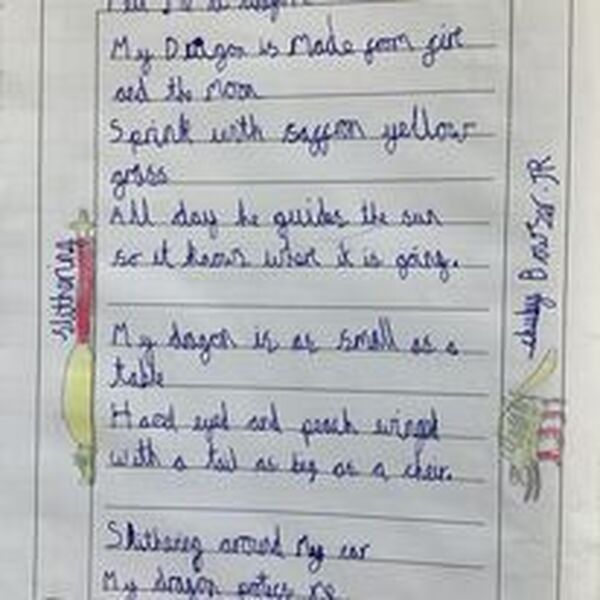 My Dragon is Made from fire
and the Moon
Sprink with saffron yellow
grass
All day he guides the sun
so it knows when it is going.
My dragon is as small as a
table
Hazel eyed and peach winged
with a tail as big as a chair.
Slithering around My ear
My dragon me
slithering
chuby Bowser JR